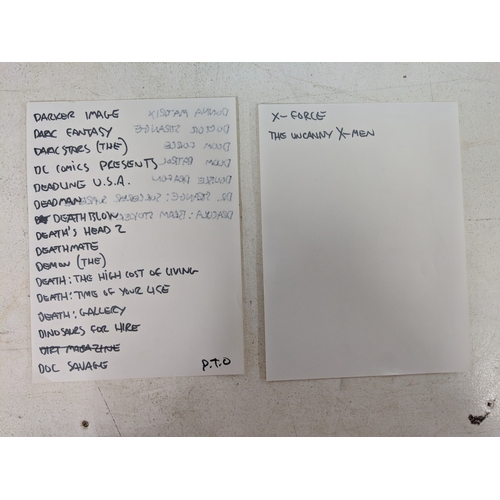 DARKER IMAGE
DARK FANTASY
DARKSTARS (THE)
DC COMICS PRESENTS
DEADLINE U.S.A.
DEADMAN
DEATHBLOW
DEATH'S HEAD 2
DEATHMATE
DEMON (THE)
DEATH: THE HIGH COST OF LIVING
DEATH: TIME OF YOUR LIFE
DEATH: GALLERY
DINOSAURS FOR HIRE
DIRT MAGAZINE
DOC SAVAGE
P.T.O
X-FORCE
THE UNCANNY X-MEN